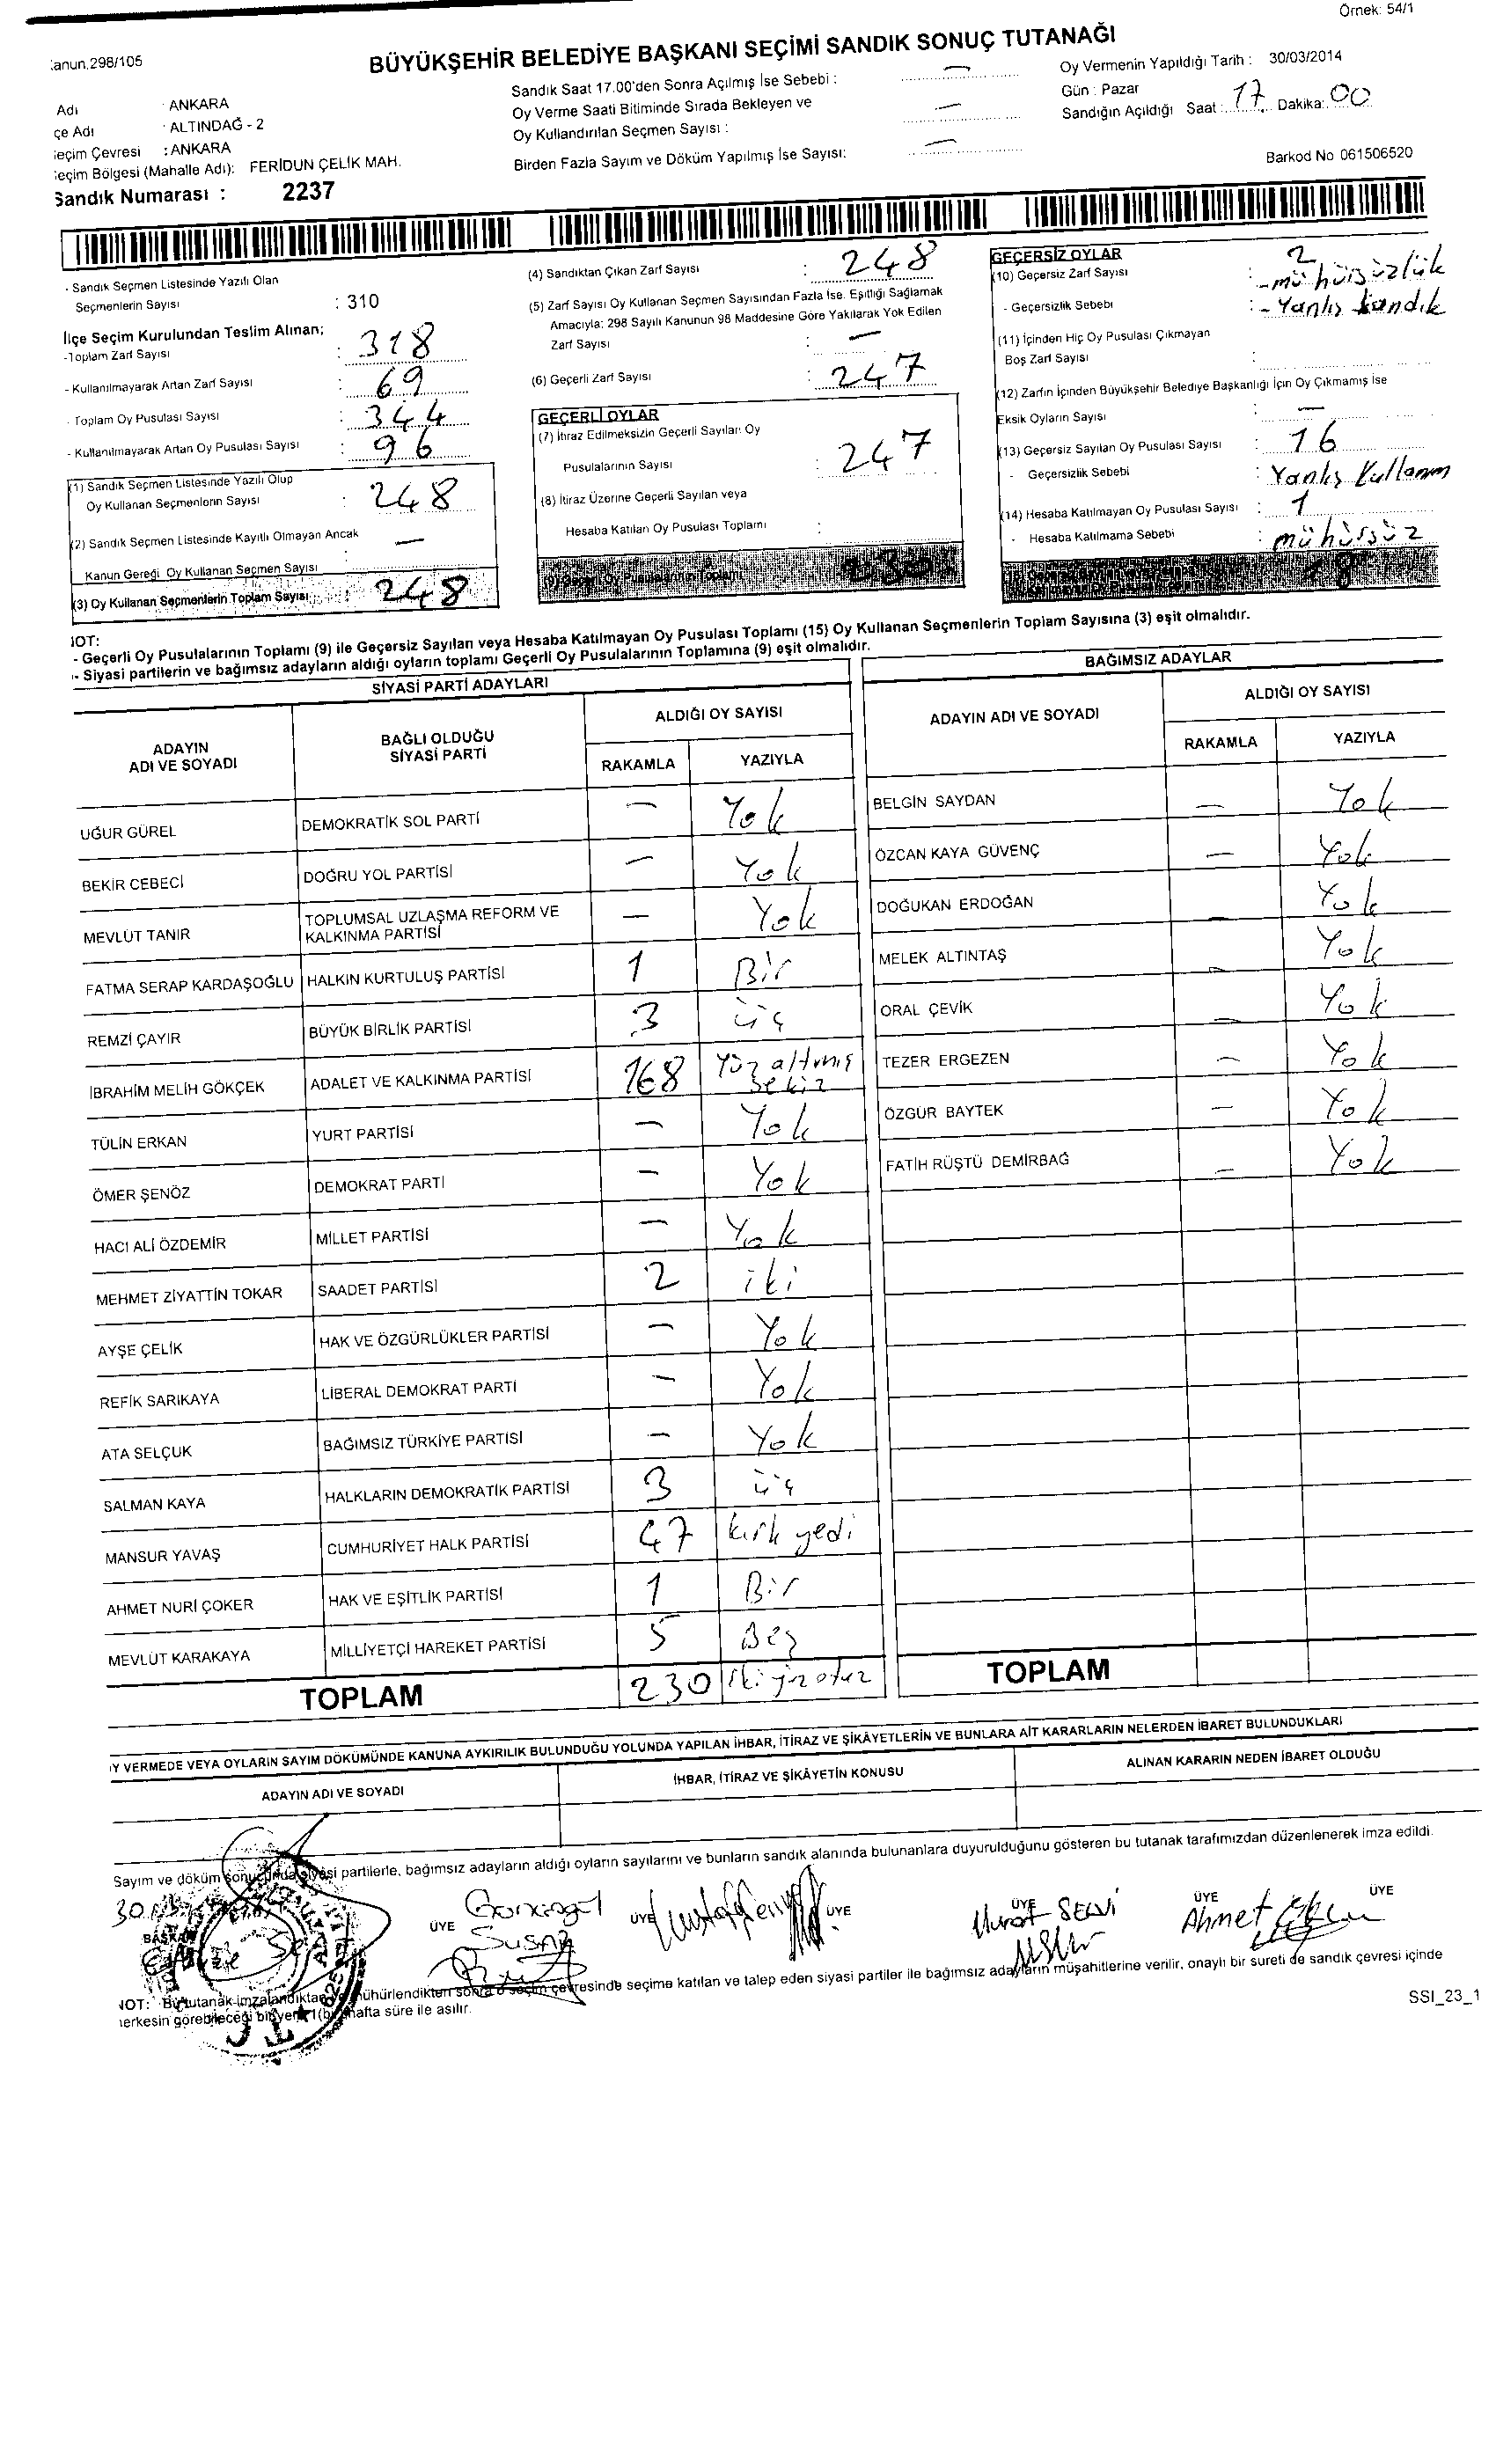 Örnek: 54/1
anun.298/105
BÜYÜKŞEHİR BELEDİYE BAŞKANI SEÇİMİ SANDIK SONUÇ TUTANAĞI
Adı : ANKARA
çe Adı : ALTINDAĞ - 2
eçim Çevresi : ANKARA
eçim Bölgesi (Mahalle Adı): FERİDUN ÇELİK MAH.
Sandık Numarası : 2237
Sandık Saat 17.00'den Sonra Açılmış İse Sebebi : —
Oy Verme Saati Bitiminde Sırada Bekleyen ve
Oy Kullandırılan Seçmen Sayısı : —
Birden Fazla Sayım ve Döküm Yapılmış İse Sayısı: —
Oy Vermenin Yapıldığı Tarih : 30/03/2014
Gün : Pazar
Sandığın Açıldığı Saat : 17 Dakika: 00
Barkod No 061506520
- Sandık Seçmen Listesinde Yazılı Olan
Seçmenlerin Sayısı : 310
İlçe Seçim Kurulundan Teslim Alınan;
-Toplam Zarf Sayısı : 318
- Kullanılmayarak Artan Zarf Sayısı : 69
- Toplam Oy Pusulası Sayısı : 344
- Kullanılmayarak Artan Oy Pusulası Sayısı : 96
(1) Sandık Seçmen Listesinde Yazılı Olup
Oy Kullanan Seçmenlerin Sayısı : 248
(2) Sandık Seçmen Listesinde Kayıtlı Olmayan Ancak
Kanun Gereği Oy Kullanan Seçmen Sayısı : —
(3) Oy Kullanan Seçmenlerin Toplam Sayısı : 248
(4) Sandıktan Çıkan Zarf Sayısı : 248
(5) Zarf Sayısı Oy Kullanan Seçmen Sayısından Fazla İse, Eşitliği Sağlamak
Amacıyla; 298 Sayılı Kanunun 98 Maddesine Göre Yakılarak Yok Edilen
Zarf Sayısı : —
(6) Geçerli Zarf Sayısı : 247
GEÇERLİ OYLAR
(7) İtiraz Edilmeksizin Geçerli Sayılan Oy
Pusulalarının Sayısı : 247
(8) İtiraz Üzerine Geçerli Sayılan veya
Hesaba Katılan Oy Pusulası Toplamı :
(9) Geçerli Oy Pusulalarının Toplamı 230
GEÇERSİZ OYLAR
(10) Geçersiz Zarf Sayısı : 2
- Geçersizlik Sebebi : - mühürsüzlük
- Yanlış sandık
(11) İçinden Hiç Oy Pusulası Çıkmayan
Boş Zarf Sayısı :
(12) Zarfın İçinden Büyükşehir Belediye Başkanlığı İçin Oy Çıkmamış İse
Eksik Oyların Sayısı : —
(13) Geçersiz Sayılan Oy Pusulası Sayısı : 16
- Geçersizlik Sebebi : Yanlış Kullanım
(14) Hesaba Katılmayan Oy Pusulası Sayısı : 1
- Hesaba Katılmama Sebebi : mühürsüz
18
NOT:
- Geçerli Oy Pusulalarının Toplamı (9) ile Geçersiz Sayılan veya Hesaba Katılmayan Oy Pusulası Toplamı (15) Oy Kullanan Seçmenlerin Toplam Sayısına (3) eşit olmalıdır.
- Siyasi partilerin ve bağımsız adayların aldığı oyların toplamı Geçerli Oy Pusulalarının Toplamına (9) eşit olmalıdır.
SİYASİ PARTİ ADAYLARI
ADAYIN ADI VE SOYADI BAĞLI OLDUĞU SİYASİ PARTİ ALDIĞI OY SAYISI
RAKAMLA YAZIYLA
UĞUR GÜREL DEMOKRATİK SOL PARTİ — Yok
BEKİR CEBECİ DOĞRU YOL PARTİSİ — Yok
MEVLÜT TANIR TOPLUMSAL UZLAŞMA REFORM VE KALKINMA PARTİSİ — Yok
FATMA SERAP KARDAŞOĞLU HALKIN KURTULUŞ PARTİSİ 1 Bir
REMZİ ÇAYIR BÜYÜK BİRLİK PARTİSİ 3 üç
İBRAHİM MELİH GÖKÇEK ADALET VE KALKINMA PARTİSİ 168 Yüz altmış sekiz
TÜLİN ERKAN YURT PARTİSİ — Yok
ÖMER ŞENÖZ DEMOKRAT PARTİ — Yok
HACI ALİ ÖZDEMİR MİLLET PARTİSİ — Yok
MEHMET ZİYATTİN TOKAR SAADET PARTİSİ 2 iki
AYŞE ÇELİK HAK VE ÖZGÜRLÜKLER PARTİSİ — Yok
REFİK SARIKAYA LİBERAL DEMOKRAT PARTİ — Yok
ATA SELÇUK BAĞIMSIZ TÜRKİYE PARTİSİ — Yok
SALMAN KAYA HALKLARIN DEMOKRATİK PARTİSİ 3 üç
MANSUR YAVAŞ CUMHURİYET HALK PARTİSİ 47 kırk yedi
AHMET NURİ ÇOKER HAK VE EŞİTLİK PARTİSİ 1 Bir
MEVLÜT KARAKAYA MİLLİYETÇİ HAREKET PARTİSİ 5 Beş
TOPLAM 230 iki yüz otuz
BAĞIMSIZ ADAYLAR
ADAYIN ADI VE SOYADI ALDIĞI OY SAYISI
RAKAMLA YAZIYLA
BELGİN SAYDAN — Yok
ÖZCAN KAYA GÜVENÇ — Yok
DOĞUKAN ERDOĞAN — Yok
MELEK ALTINTAŞ — Yok
ORAL ÇEVİK — Yok
TEZER ERGEZEN — Yok
ÖZGÜR BAYTEK — Yok
FATİH RÜŞTÜ DEMİRBAĞ — Yok
TOPLAM
Y VERMEDE VEYA OYLARIN SAYIM DÖKÜMÜNDE KANUNA AYKIRILIK BULUNDUĞU YOLUNDA YAPILAN İHBAR, İTİRAZ VE ŞİKÂYETLERİN VE BUNLARA AİT KARARLARIN NELERDEN İBARET BULUNDUKLARI
ADAYIN ADI VE SOYADI İHBAR, İTİRAZ VE ŞİKÂYETİN KONUSU ALINAN KARARIN NEDEN İBARET OLDUĞU
Sayım ve döküm sonucunda siyasi partilerle, bağımsız adayların aldığı oyların sayılarını ve bunların sandık alanında bulunanlara duyurulduğunu gösteren bu tutanak tarafımızdan düzenlenerek imza edildi.
BAŞKAN ÜYE ÜYE ÜYE ÜYE ÜYE ÜYE
Murat SELVİ
Ahmet
NOT: Bu tutanak imzalandıktan ve mühürlendikten sonra o seçim çevresinde seçime katılan ve talep eden siyasi partiler ile bağımsız adayların müşahitlerine verilir, onaylı bir sureti de sandık çevresi içinde
herkesin görebileceği bir yere 1 (bir) hafta süre ile asılır.
SSI_23_1